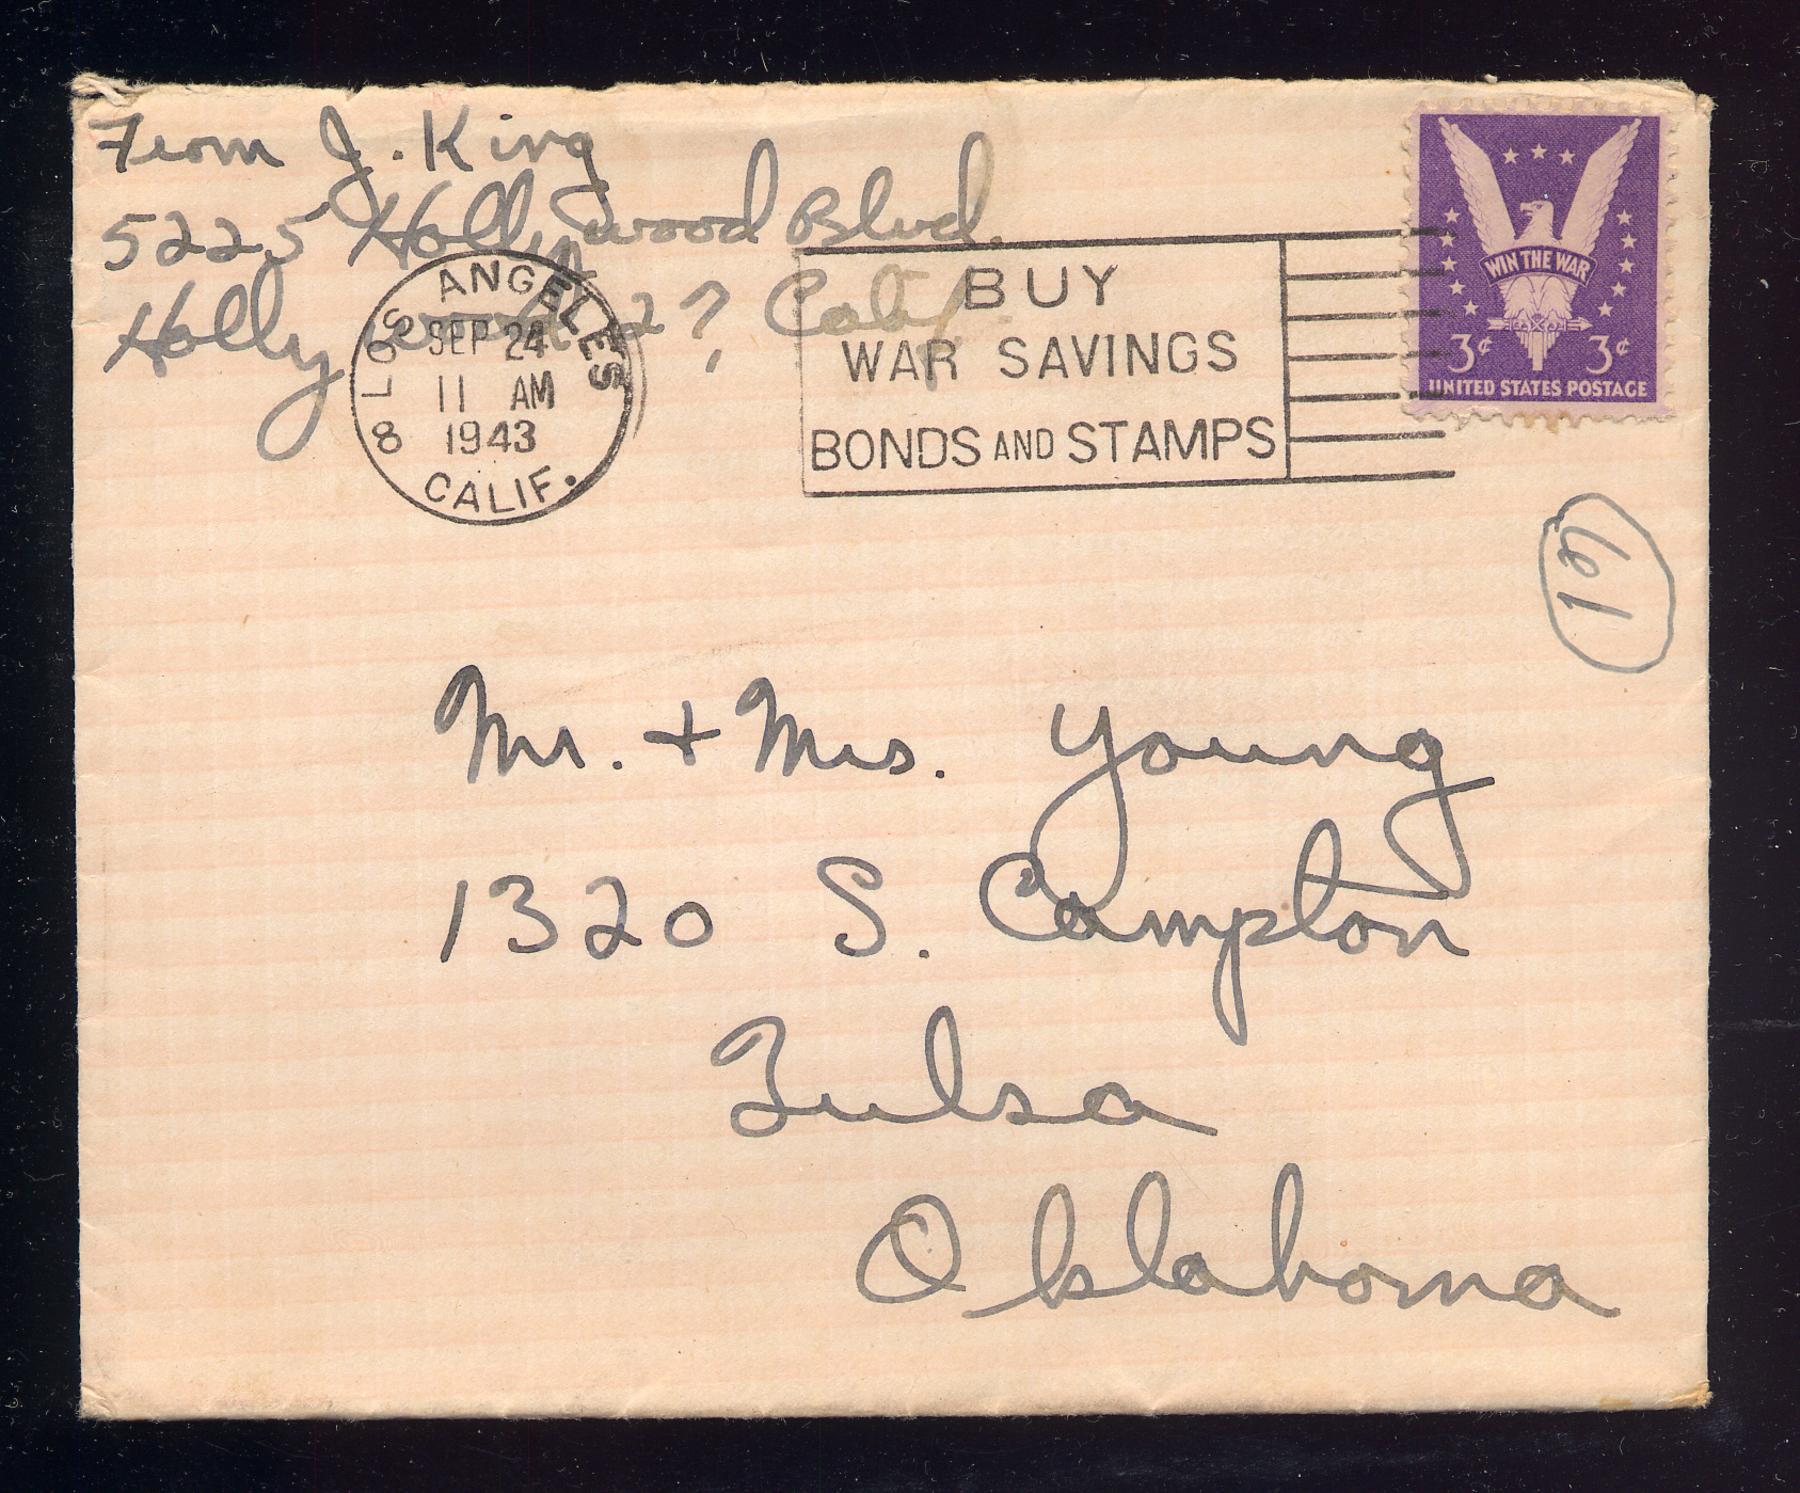 From J. King
5225 Hollywood Blvd.
Hollywood 27, Calif.
LOS ANGELES 8
SEP 24
11 AM
1943
CALIF.
BUY
WAR SAVINGS
BONDS AND STAMPS
WIN THE WAR
3¢ 3¢
UNITED STATES POSTAGE
61
Mr. + Mrs. Young
1320 S. Campton
Tulsa
Oklahoma